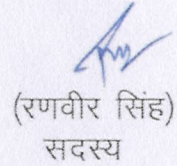 (रणवीर सिंह)
सदस्य